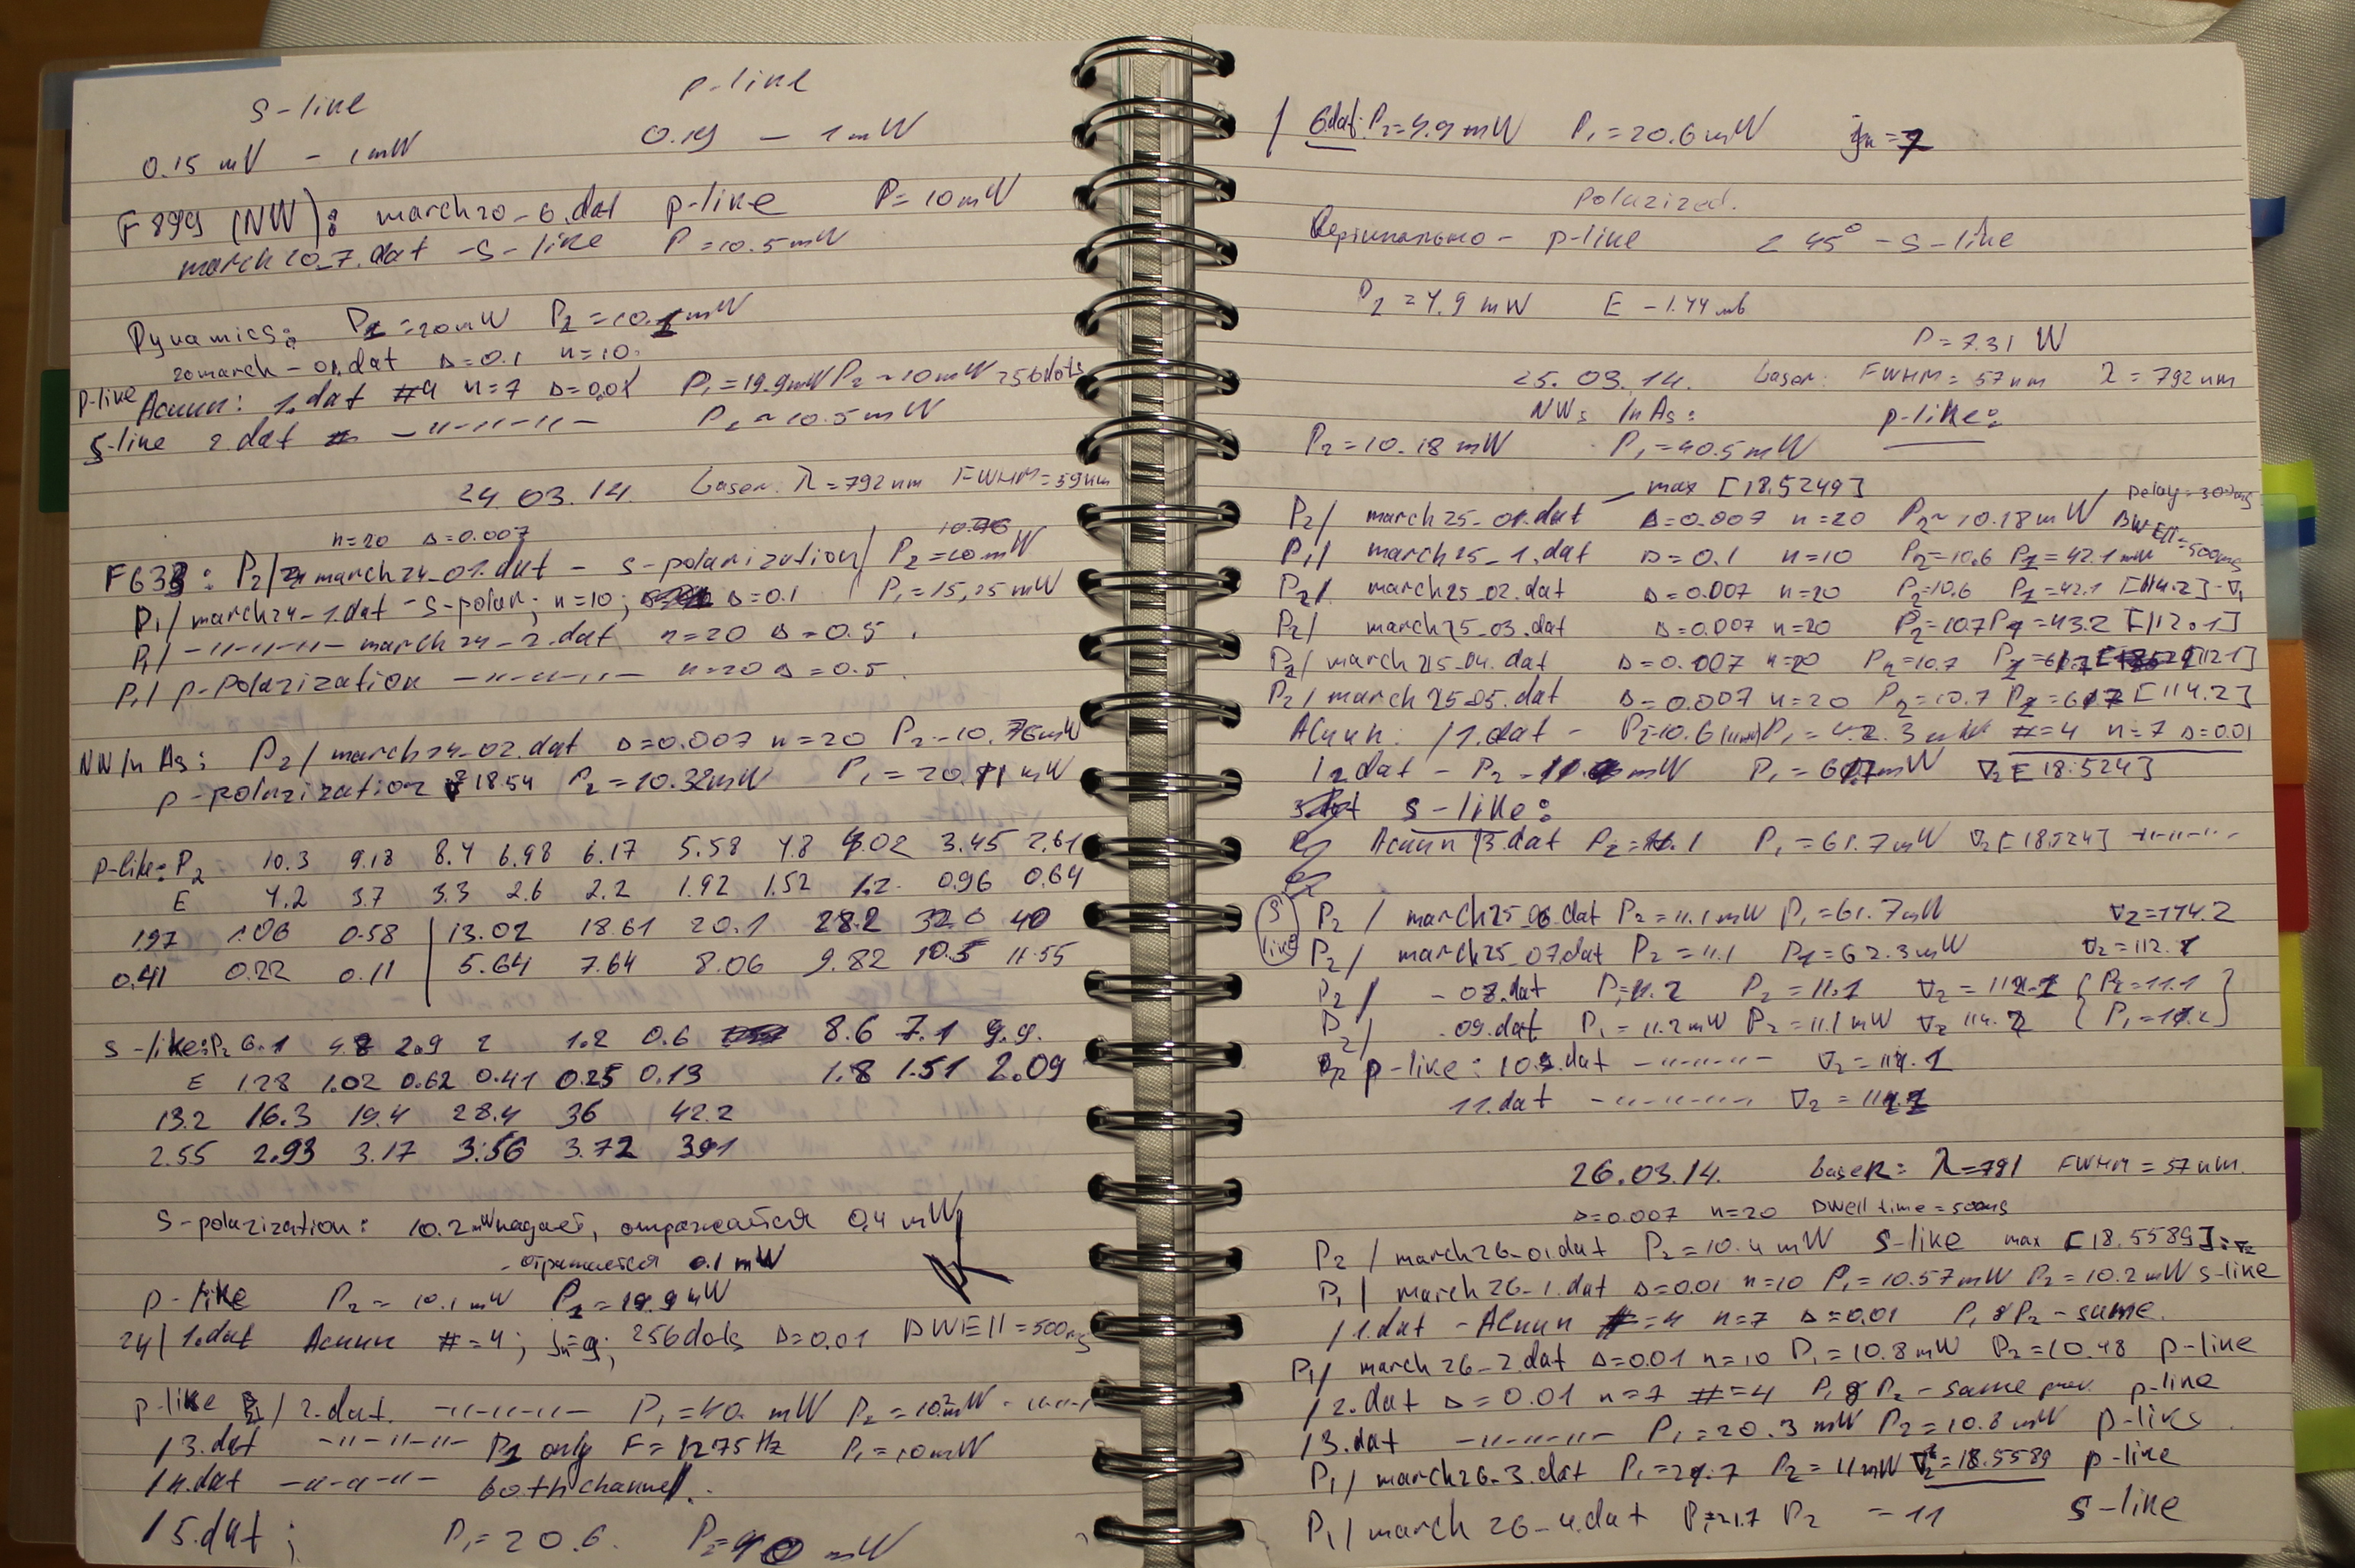 s-like p-like
0.15 mV - 1 mW 0.19 - 1 mW
F899 (NW): march20-6.dat p-like P=10mW
march20_7.dat -s-like P=10.5mW
Dynamics: P1=20mW P2=10.1mW
20march-01.dat Δ=0.1 n=10.
p-like Асинн: 1.dat #4 n=7 Δ=0.01 P1=19.9mW P2~10mW 256dots
s-like 2.dat -"-"-"-"- P2~10.5mW
24.03.14. Laser: λ=792nm FWHM=59nm
n=20 Δ=0.007
F633: P2/ march24-01.dat - s-polarization/ P2=10mW
P1/march24-1.dat -s-polar; n=10; Δ=0.1 / P1=15,25mW
P1/ -"-"-"-"- march24-2.dat n=20 Δ=0.5.
P1/ p-Polarization -"-"-"-"- n=20 Δ=0.5.
NW InAs: P2/ march24-02.dat Δ=0.007 n=20 P2-10.76mW
p-polarization 18.54 P2=10.32mW P1=20.11mW
p-like: P2 10.3 9.18 8.4 6.98 6.17 5.58 4.8 4.02 3.45 2.61
E 4.2 3.7 3.3 2.6 2.2 1.92 1.52 1.2. 0.96 0.64
1.97 1.06 0.58 | 13.02 18.61 20.1 28.2 32.0 40
0.41 0.22 0.11 | 5.64 7.64 8.06 9.82 10.5 11.55
s-like: P2 6.1 4.8 2.9 2 1.2 0.6 8.6 7.1 9.9.
E 1.28 1.02 0.62 0.41 0.25 0.13 1.8 1.51 2.09
13.2 16.3 19.4 28.4 36 42.2
2.55 2.93 3.17 3.56 3.72 3.91
s-polarization: 10.2mW падает, отражается 0,4 mW
- отражается 0.1 mW
p-like P2=10.1mW P1=19.9mW
24/ 1.dat Асинн #=4; jn=9; 256dots Δ=0.01 DWEll=500ms
p-like /2.dat. -"-"-"-"- P1=40. mW P2=10.2mW -"-"-"
/3.dat -"-"-"- P1 only F=1275Hz P1=10mW
/4.dat -"-"-"- both channel.
/5.dat; P1=20.6. P2=40 mW
/ 6.dat: P2=4.9mW P1=20.6mW jn=7
polarized.
Вертикально - p-like ∠45° - s-like
P2=4.9mW E-1.44мв
P=7.31 W
25.03.14. Laser: FWHM=57nm λ=792nm
NWs InAs: p-like:
P2=10.18mW P1=40.5mW
max [18.5249] Delay=300ms
P2/ march25-01.dat Δ=0.007 n=20 P2~10.18mW DWEll=500ms
P1/ march25-1.dat Δ=0.1 n=10 P2=10.6 P1=42.1mW
P2/ march25-02.dat Δ=0.007 n=20 P2=10.6 P1=42.1 [114.2]-∇1
P2/ march25-03.dat Δ=0.007 n=20 P2=10.7 P1=43.2 [112.1]
P2/ march25-04.dat Δ=0.007 n=20 P2=10.7 P1=61.7 [112.1]
P2/ march25-05.dat Δ=0.007 n=20 P2=10.7 P1=61.7 [114.2]
Асинн: /1.dat - P2-10.6 P1=42.3mW #=4 n=7 Δ=0.01
/2.dat - P2 - mW P1=61.7mW ∇2[18.524]
s-like:
Асинн /3.dat P2=11.1 P1=61.7mW ∇2[18.524] -"-"-"-
(s like) P2/ march25-06.dat P2=11.1mW P1=61.7mW ∇2=114.2
P2/ march25-07.dat P2=11.1 P1=62.3mW ∇2=112.1
P2/ -08.dat P1=11.2 P2=11.1 ∇2=112.1 {P2=11.1}
P2/ -09.dat P1=11.2mW P2=11.1mW ∇2 114.2 {P1=11.2}
p-like: 10.dat -"-"-"-"- ∇2=
11.dat -"-"-"-"- ∇2=
26.03.14. Laser: λ=791 FWHM=57nm.
Δ=0.007 n=20 DWell time=500ms
P2/ march26-01.dat P2=10.4mW s-like max [18.5589]:∇2
P1/ march26-1.dat Δ=0.01 n=10 P1=10.57mW P2=10.2mW s-like
/1.dat - Асинн #=4 n=7 Δ=0.01 P1&P2-same.
P1/ march26-2.dat Δ=0.01 n=10 P1=10.8mW P2=10.48 p-like
/2.dat Δ=0.01 n=7 #=4 P1&P2-same prev. p-like
/3.dat -"-"-"-"- P1=20.3mW P2=10.8mW p-like.
P1/ march26-3.dat P1=21.7 P2=11mW ∇2=18.5589 p-like
P1/ march26-4.dat P1=21.7 P2=11 s-like